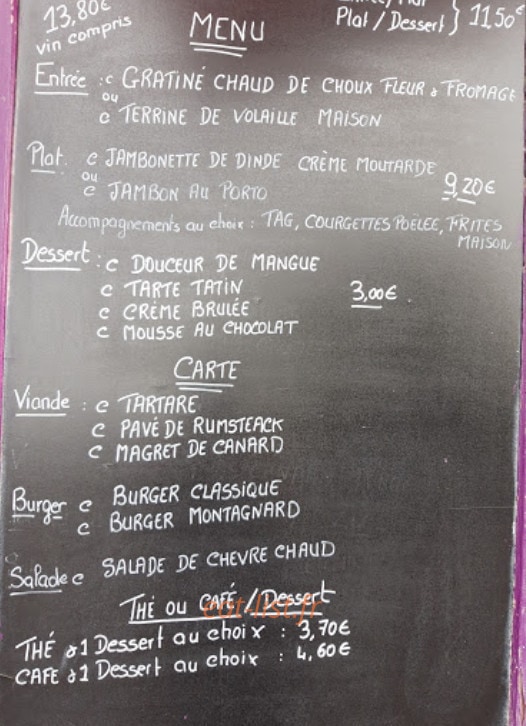 13,80€
vin compris
Plat / Dessert } 11,50€
MENU
Entrée : c GRATINÉ CHAUD DE CHOUX FLEUR & FROMAGE
ou
c TERRINE DE VOLAILLE MAISON
Plat. c JAMBONETTE DE DINDE CRÈME MOUTARDE
ou
c JAMBON AU PORTO
9,20€
Accompagnements au choix : TAG, COURGETTES POÊLEE, FRITES
MAISON
Dessert : c DOUCEUR DE MANGUE
c TARTE TATIN
3,00€
c CRÈME BRULÉE
c MOUSSE AU CHOCOLAT
CARTE
Viande : c TARTARE
c PAVÉ DE RUMSTEACK
c MAGRET DE CANARD
Burger c BURGER CLASSIQUE
c BURGER MONTAGNARD
Salade c SALADE DE CHEVRE CHAUD
THÉ OU CAFÉ / Dessert
THÉ & 1 Dessert au choix : 3,70€
CAFE & 1 Dessert au choix : 4,60€